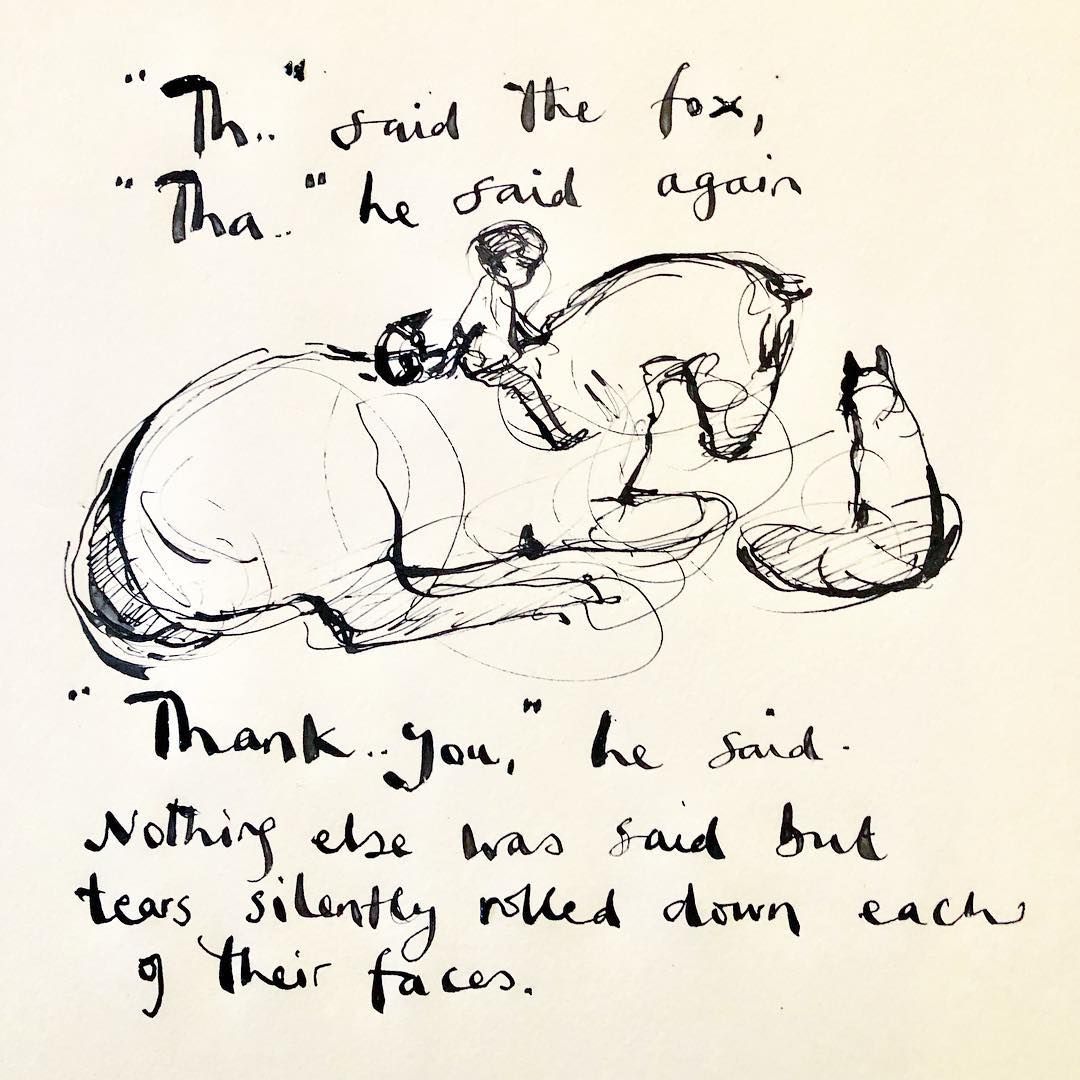 "Th.." said the fox,
"Tha.." he said again
"Thank..you," he said.
Nothing else was said but
tears silently rolled down each
of their faces.